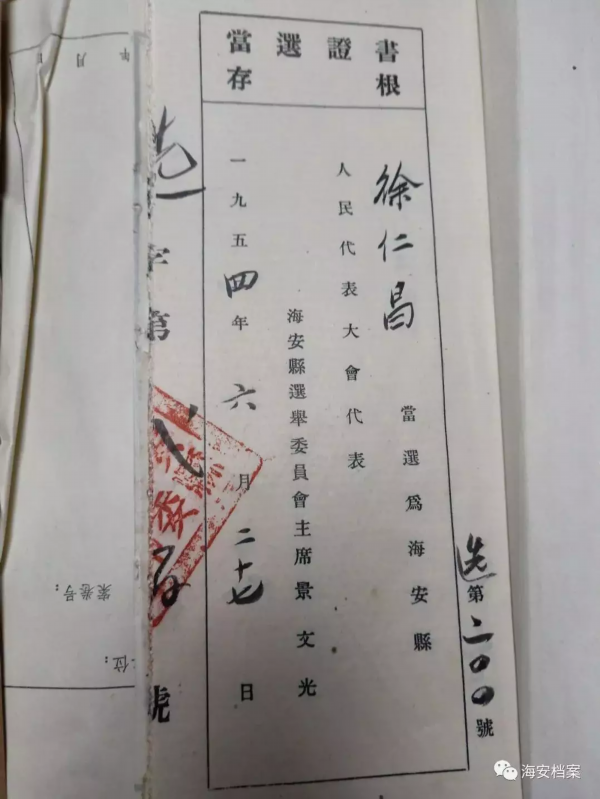 當選證書
存根
选第二〇〇號
徐仁昌 當選爲海安縣
人民代表大會代表
海安縣選舉委員會主席景文光
一九五四年六月二十七日
选字第
號
年 月
案卷号：
位：
海安档案